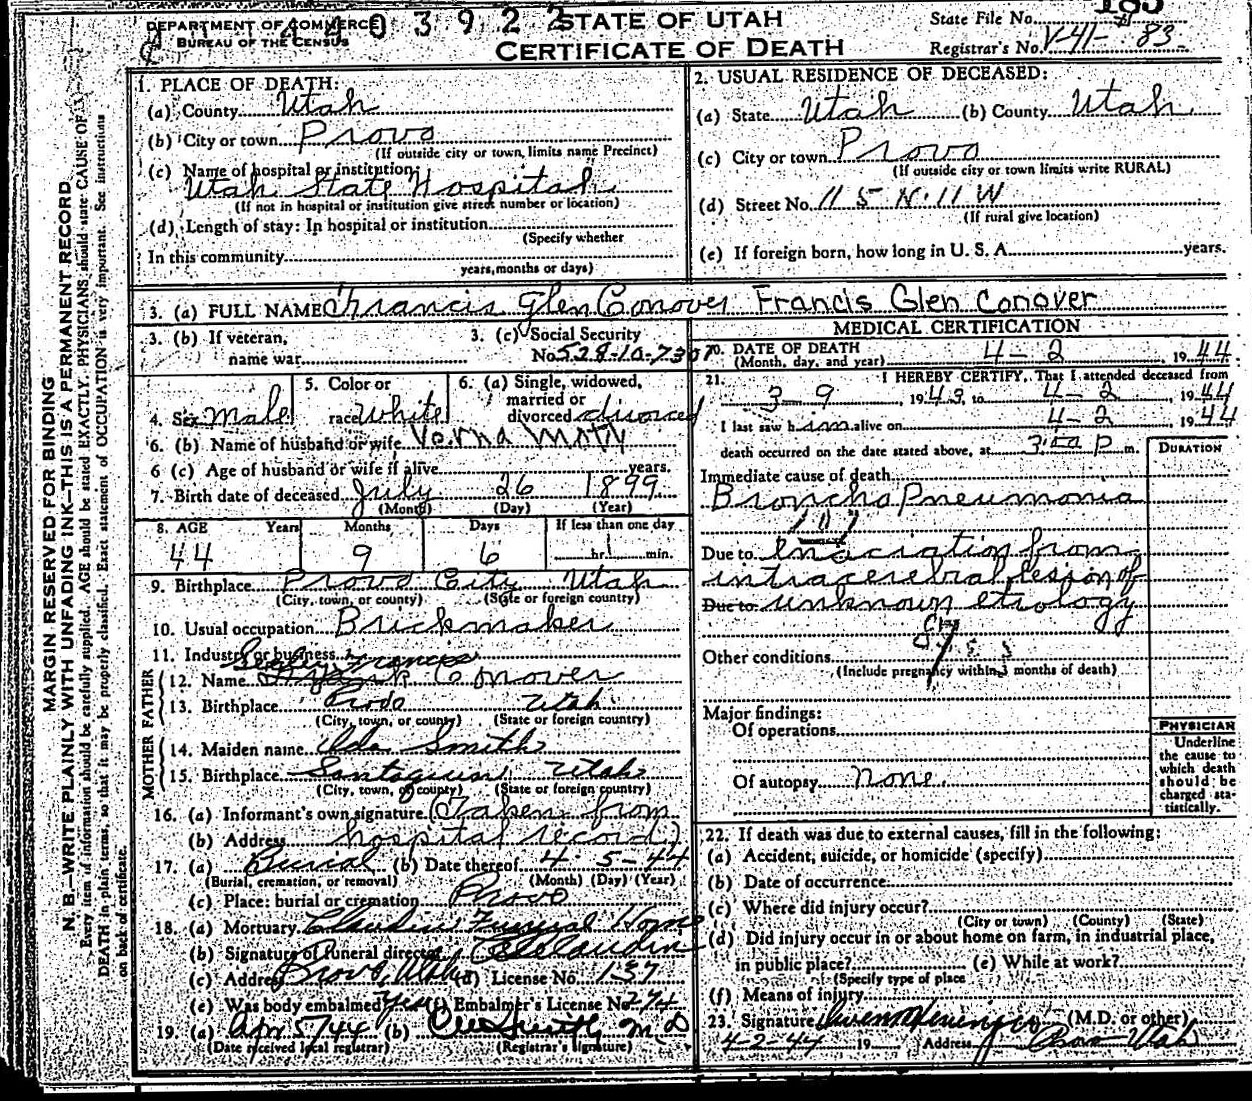 DEPARTMENT OF COMMERCE
BUREAU OF THE CENSUS
4 4 0 3 9 2 2
STATE OF UTAH
CERTIFICATE OF DEATH
State File No.
Registrar's No. V-41- 83
MARGIN RESERVED FOR BINDING
N. B.—WRITE PLAINLY WITH UNFADING INK—THIS IS A PERMANENT RECORD
Every item of information should be carefully supplied. AGE should be stated EXACTLY. PHYSICIANS should state CAUSE OF
DEATH in plain terms, so that it may be properly classified. Exact statement of OCCUPATION is very important. See instructions
on back of certificate.
1. PLACE OF DEATH:
(a) County Utah
(b) City or town Provo
(If outside city or town, limits name Precinct)
(c) Name of hospital or institution
Utah State Hospital
(If not in hospital or institution give street number or location)
(d) Length of stay: In hospital or institution
(Specify whether
In this community
years, months or days)
2. USUAL RESIDENCE OF DECEASED:
(a) State Utah (b) County Utah
(c) City or town Provo
(If outside city or town limits write RURAL)
(d) Street No. 11 5 N. 11 W
(If rural give location)
(e) If foreign born, how long in U. S. A. years.
3. (a) FULL NAME Francis Glen Conover Francis Glen Conover
3. (b) If veteran,
name war
3. (c) Social Security
No. 528-10-7307
4. Sex Male
5. Color or
race White
6. (a) Single, widowed,
married or
divorced divorced
6. (b) Name of husband or wife Verna
6 (c) Age of husband or wife if alive years.
7. Birth date of deceased July 26 1899
(Month) (Day) (Year)
8. AGE Years Months Days If less than one day
44 9 6 hr. min.
9. Birthplace Provo City Utah
(City, town, or county) (State or foreign country)
10. Usual occupation Brickmaker
11. Industry or business
FATHER
12. Name Conover
13. Birthplace Provo Utah
(City, town, or county) (State or foreign country)
MOTHER
14. Maiden name Ada Smith
15. Birthplace Santaquin Utah
(City, town, or county) (State or foreign country)
16. (a) Informant's own signature (Taken from
(b) Address hospital record)
17. (a) Burial (b) Date thereof 4-5-44
(Burial, cremation, or removal) (Month) (Day) (Year)
(c) Place: burial or cremation Provo
18. (a) Mortuary Claudin Funeral Home
(b) Signature of funeral director Claudin
(c) Address Provo, Utah (d) License No. 137
(e) Was body embalmed Yes (f) Embalmer's License No. 274
19. (a) Apr 5/44 (b) M D
(Date received local registrar) (Registrar's signature)
MEDICAL CERTIFICATION
20. DATE OF DEATH
(Month, day, and year) 4-2, 1944
21. I HEREBY CERTIFY, That I attended deceased from
3-9, 1943, to 4-2, 1944
I last saw him alive on 4-2, 1944
death occurred on the date stated above, at 3:00 P m.
DURATION
Immediate cause of death
Broncho Pneumonia
Due to emaciation from
intracerebral lesion of
Due to unknown etiology
Other conditions
(Include pregnancy within 3 months of death)
Major findings:
Of operations
Of autopsy none.
PHYSICIAN
Underline
the cause to
which death
should be
charged sta-
tistically.
22. If death was due to external causes, fill in the following:
(a) Accident, suicide, or homicide (specify)
(b) Date of occurrence
(c) Where did injury occur?
(City or town) (County) (State)
(d) Did injury occur in or about home on farm, in industrial place,
in public place? (e) While at work?
(Specify type of place
(f) Means of injury
23. Signature (M.D. or other)
4-2-44 19 Address Provo Utah